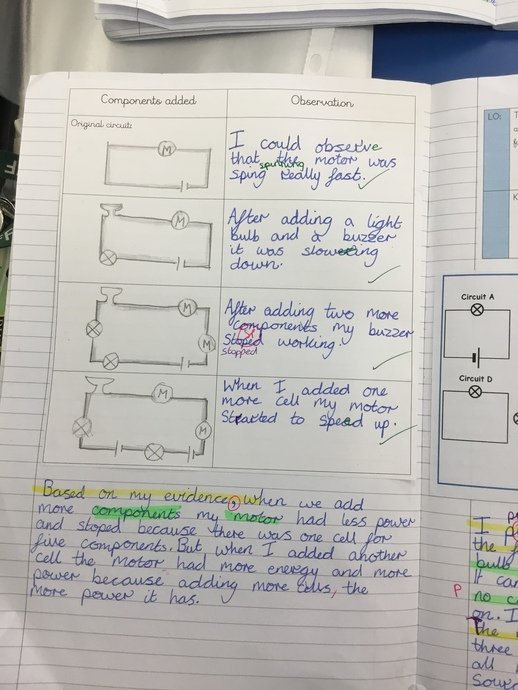 Components added
Observation
Original circuit:
I could observe
that the motor was
spinning
sping really fast.
M
After adding a light
bulb and a buzzer
it was slowering
down.
M
After adding two more
components my buzzer
Stoped working.
stopped
M
M
When I added one
more cell my motor
Started to speed up.
M
M
Based on my evidence, when we add
more components my motor had less power
and stoped because there was one cell for
five components. But when I added another
cell the motor had more energy and more
power because adding more cells, the
more power it has.
LO:
Circuit A
Circuit D
I
the
bulb
It can
no c
P
on. I
The
three
all
Sour